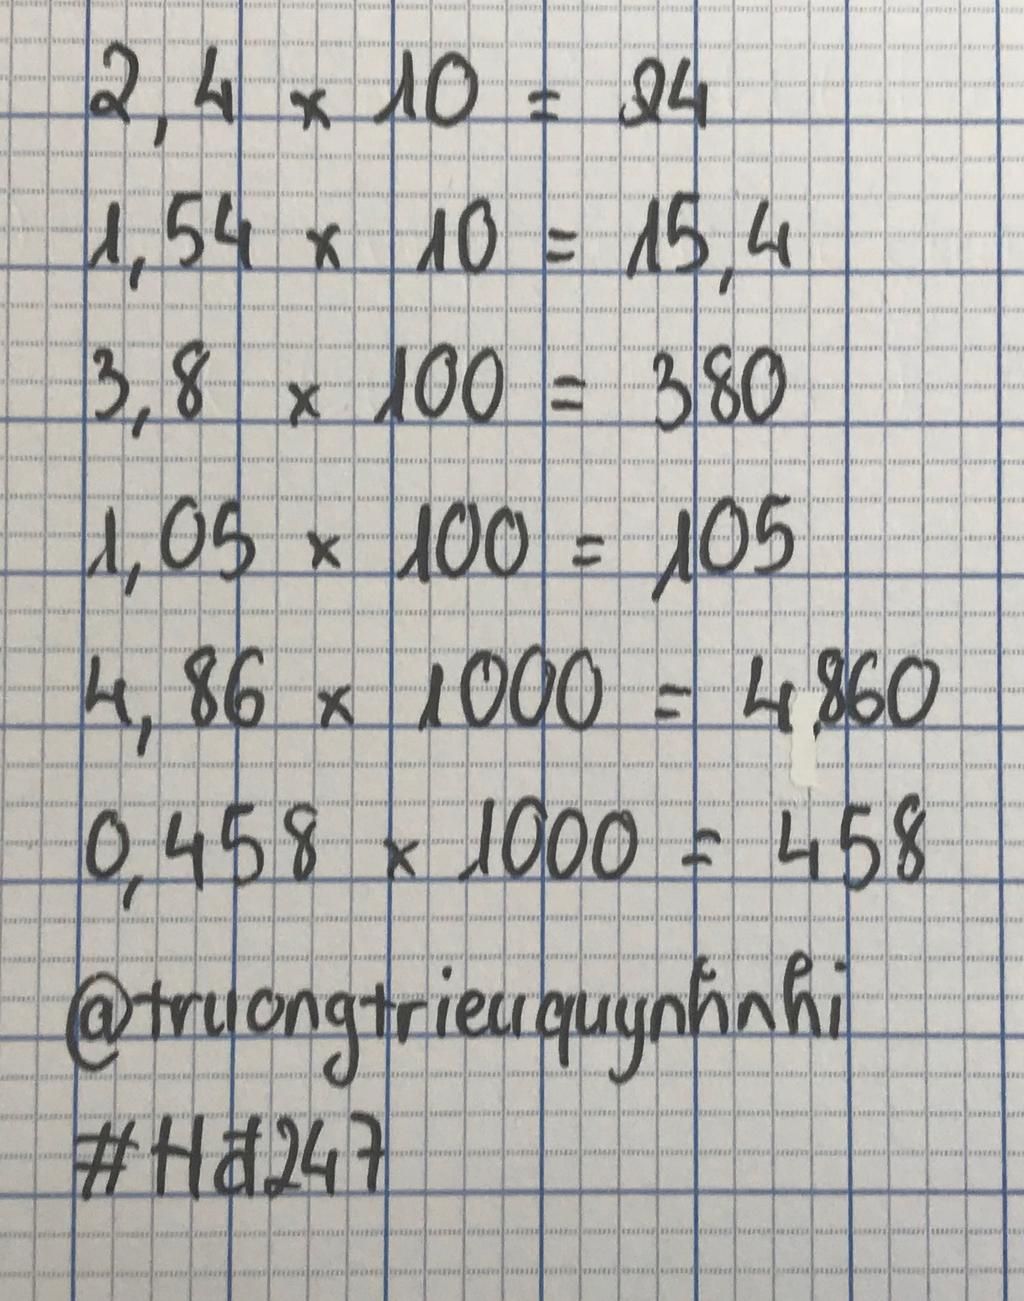 2,4 x 10 = 24
1,54 x 10 = 15,4
3,8 x 100 = 380
1,05 x 100 = 105
4,86 x 1000 = 4860
0,458 x 1000 = 458
@truongtrieuquynhnhi
#Hđ247